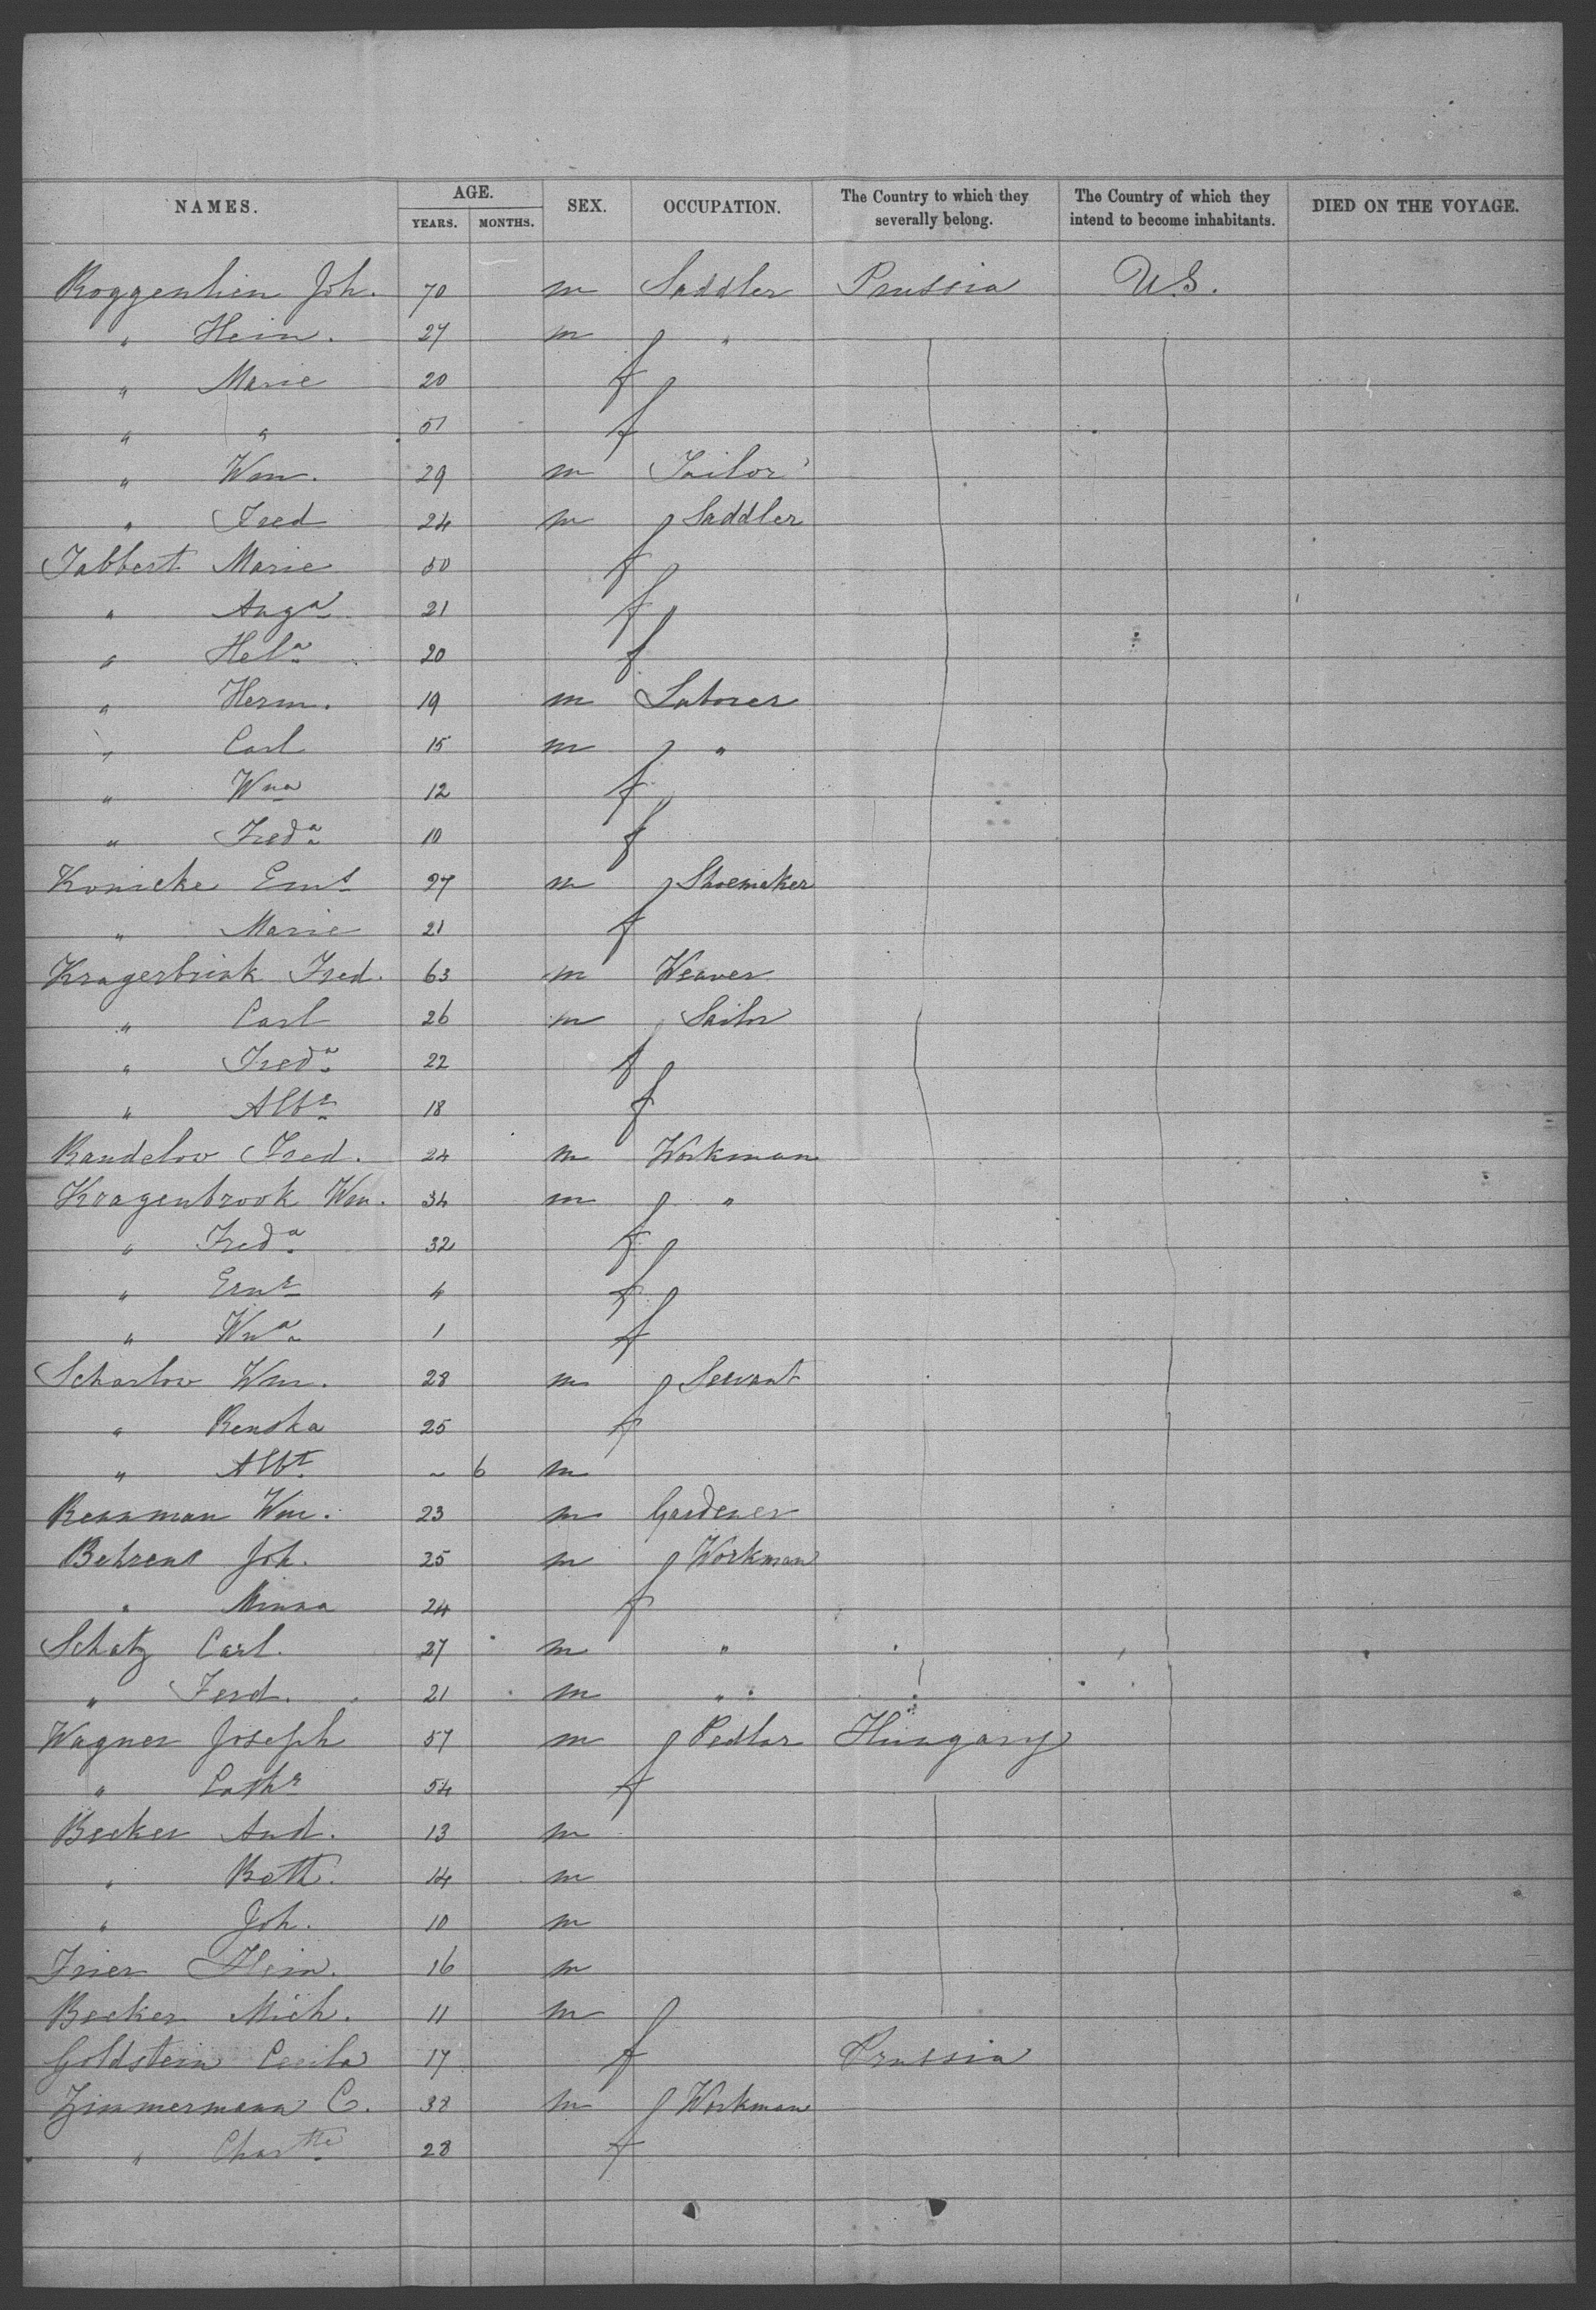 NAMES. AGE. SEX. OCCUPATION. The Country to which they severally belong. The Country of which they intend to become inhabitants. DIED ON THE VOYAGE.
YEARS. MONTHS.
Roggenhien Joh. 70 m Saddler Prussia U.S.
" Hein. 27 m "
" Marie 20 f
" " 51 f
" Wm. 29 m Tailor
" Fred 24 m Saddler
Tabbert Marie 50 f
" Auga 21 f
" Hela 20 f
" Herm. 19 m Laborer
" Carl 15 m "
" Wna 12 f
" Freda 10 f
Konicke 27 m Shoemaker
" Marie 21 f
Kragerbrink Fred. 63 m Weaver
" Carl 26 m Sailor
" Freda 22 f
" Albe 18 f
Randelow Fred. 24 m Workman
Kragenbrook Wm. 34 m "
" Freda 32 f
" Erne 4 f
" Wna 1 f
Scharlow Wm. 28 m Servant
" 25 f
" Albt ~ 6 m
Rennman Wm. 23 m Gardener
Behrens Joh. 25 m Workman
" Minna 24 f
Schatz Carl. 27 m "
" Ferd. 21 m "
Wagner Joseph 57 m Pedlar Hungary
" Cathe 54 f
Becker And. 13 m
" 14 m
" Joh. 10 m
Hein. 16 m
Becker Mich. 11 m
Goldstein Cecila 17 f Prussia
Zimmermann C. 38 m Workman
" Chartte 28 f